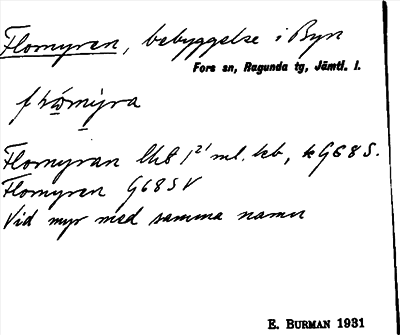 Flomyren, bebyggelse i Byn
Fors sn, Ragunda tg, Jämtl. l.
Flomyran 1 ml. kb, k G68 S.
Flomyren G68SV
Vid myr med samma namn
E. BURMAN 1931